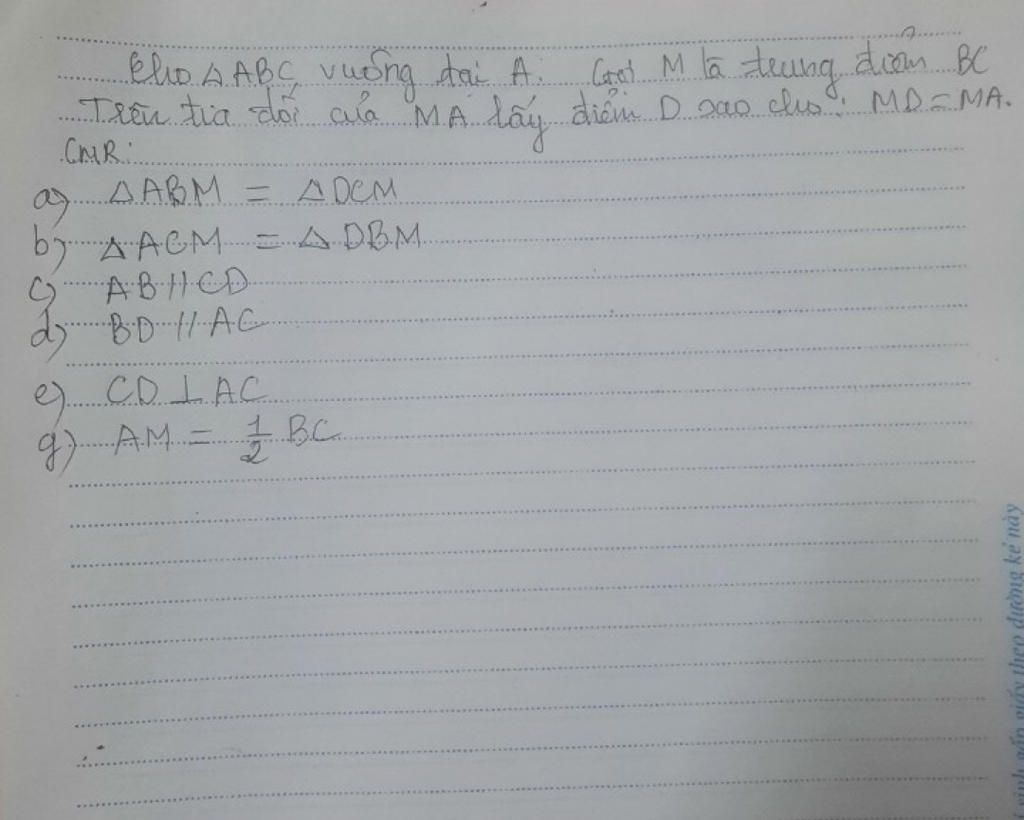 Cho △ABC vuông tại A. Gọi M là trung điểm BC
Trên tia đối của MA lấy điểm D sao cho: MD = MA.
CMR:
a) △ABM = △DCM
b) △ACM = △DBM
c) AB // CD
d) BD // AC
e) CD ⊥ AC
g) AM = 1/2 BC
giấy theo đường kẻ này